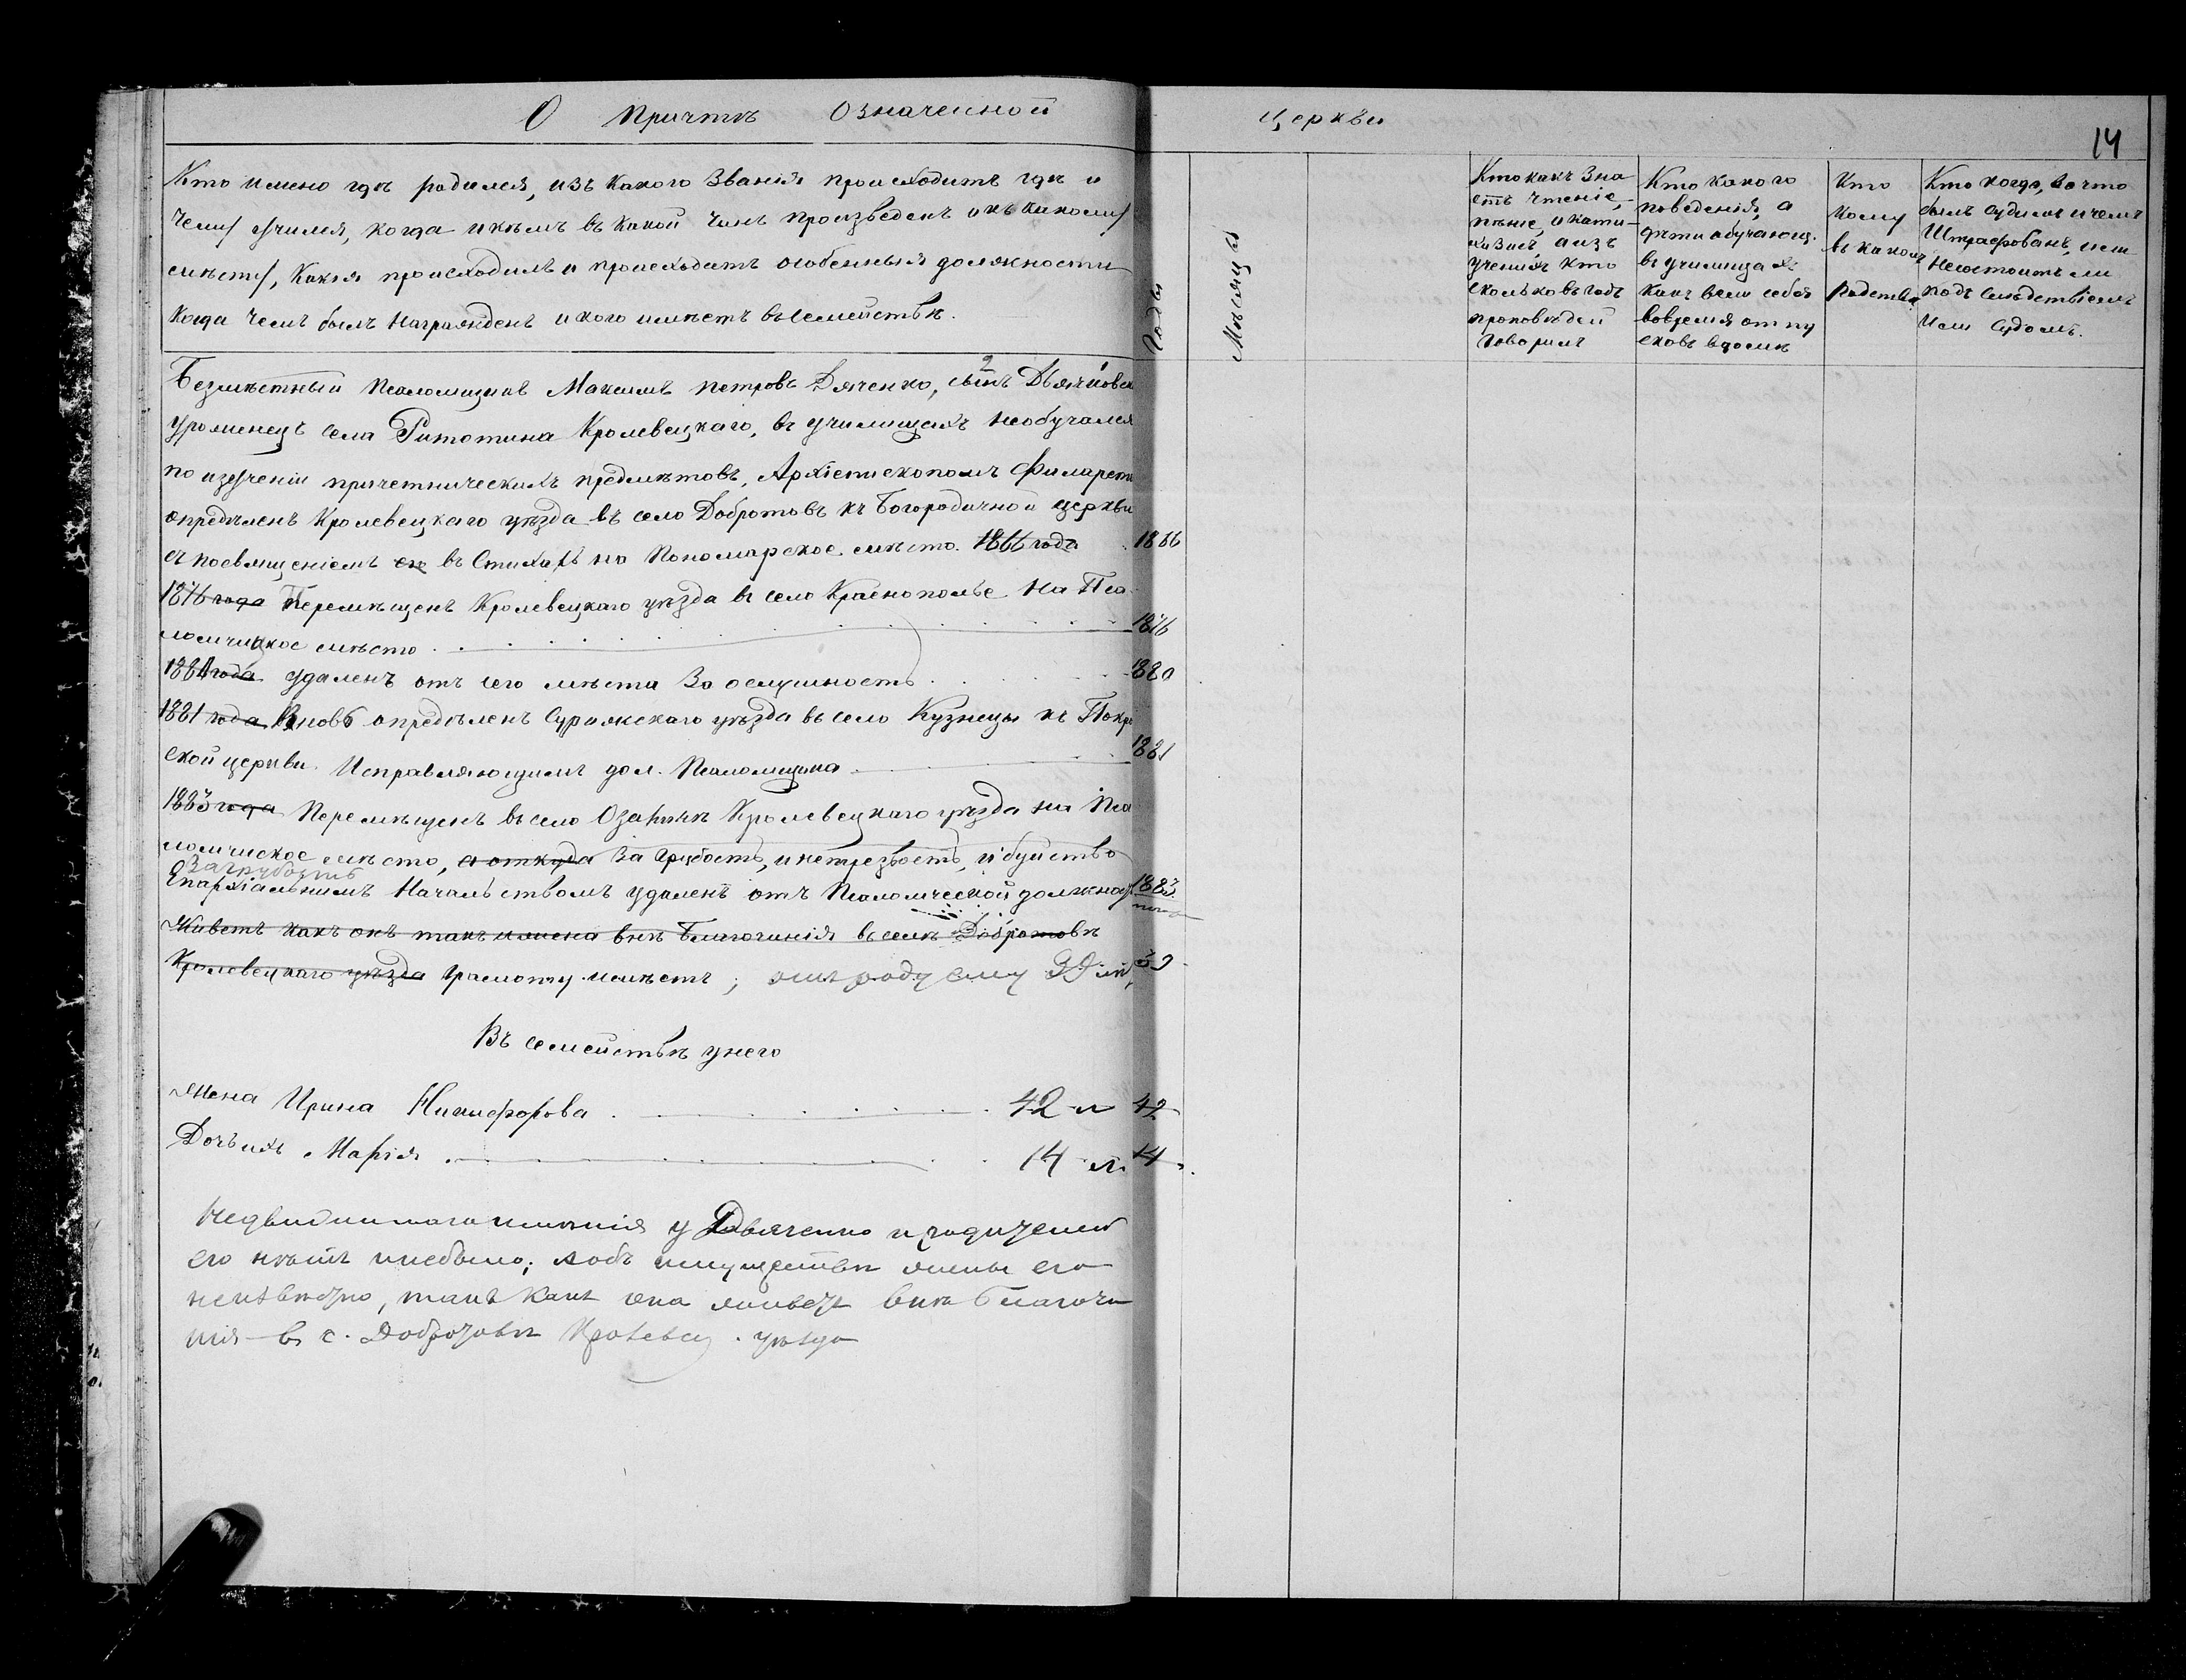 О Причтѣ Означенной Церкви
14
Кто имено гдѣ родился, изъ какого Званія происходитъ гдѣ и
Чему учился, когда и кѣмъ въ какой Чинъ произведенъ и къ какому
мѣсту, Какія происходилъ и происходитъ особенныя должности
Когда Чемъ былъ Награжденъ и кого имѣетъ въ Семействѣ.
Годы
Мѣсяцы
Кто какъ Зна
етъ чтеніе,
пѣніе, и кати-
хизисъ а изъ
ученихъ кто
сколько въ годъ
проповѣдей
Говорилъ
Кто какого
поведенія, а
дѣти обучающ.
въ училищахъ
какъ вели себя
вовремя отпу
сковъ въ домъ
Кто
Кому
въ каком
Родствѣ
Кто когда, за что
былъ судимъ и чемъ
Штрафованъ, или
Несостоитъ ли
подъ Слѣдствіемъ
Или Судомъ.
Безмѣстный Псаломщикъ Максимъ петровъ Дяченко, сынъ Дьячковск
Уроженецъ села Ритотина Кролевецкаго, въ училищахъ необучался
по изученіи причетническихъ предмѣтовъ, Архіепископомъ Филарет
опредѣленъ Кролевецкаго уѣзда въ село Добротовъ къ Богородичной церкви
съ посвященіемъ въ Стихарь на Пономарское мѣсто. 1866 года 1866
1876 года Перемѣщенъ Кролевецкаго уѣзда въ село Краснополье На Пса
ломчицкое мѣсто 1876
1880 года удаленъ отъ сего мѣста За ослушность 1880
1881 года Вновь опредѣленъ Суражскаго уѣзда въ село Кузнецы къ Покро
ской церкви. Исправляющимъ дол. Псаломщика 1881
1883 года Перемѣщенъ въ село Озаричи Кролевецкаго уѣзда на Пса
ломческое мѣсто, а откуда За грубость, и нетрезвость, и буйство
За грубость
Епархіальнимъ Начальствомъ удаленъ отъ Псаломческой должност 1883
Живетъ какъ онъ такъ и жена внѣ Благочинія въ селѣ Добротовѣ
Кролевецкаго уѣзда Грамоту имѣетъ; отъ роду ему 39 лѣт 39
Въ семействѣ у него
Жена Ирина Никифорова 42 л 42
Дочь ихъ Марія 14 л. 14
Недвижимаго имѣнія у Дьяченко и родителей
его нѣтъ и небыло; объ имуществѣ жены его
неизвѣстно, такъ какъ она живетъ внѣ благочи
нія въ с. Добротовѣ Кролевец. уѣзда